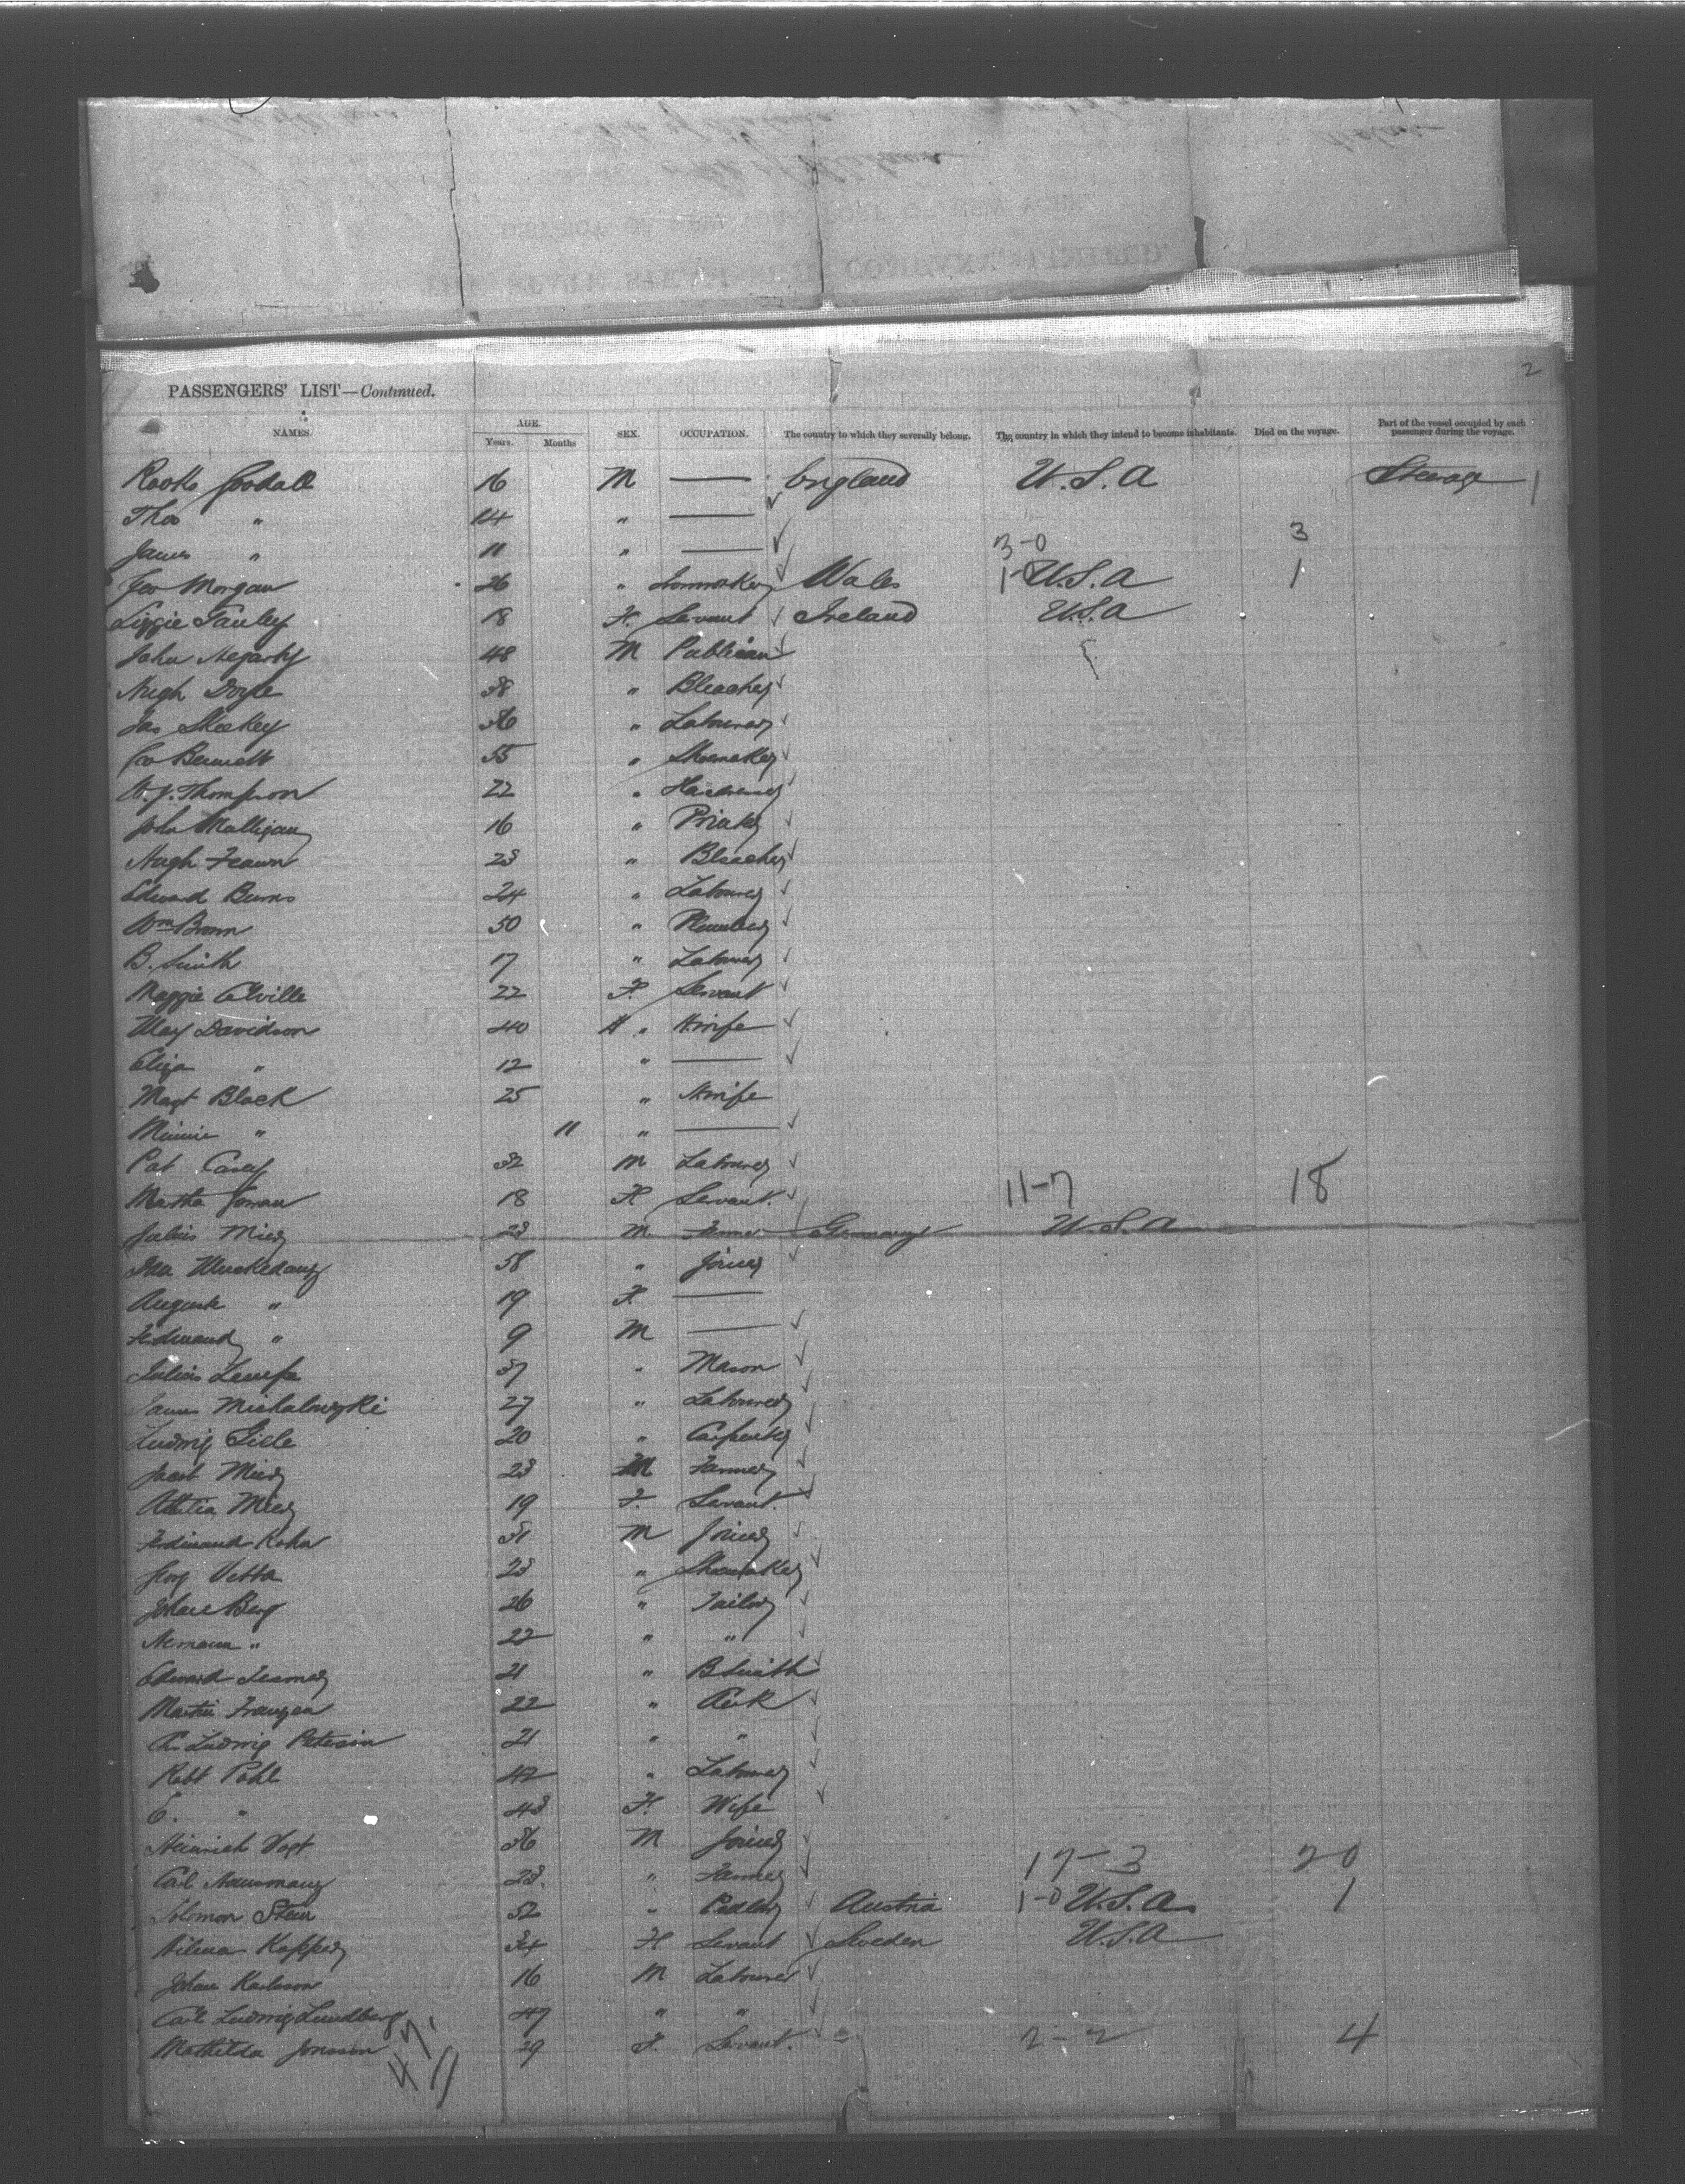 2
PASSENGERS' LIST—Continued.
NAMES. AGE. Years. Months SEX. OCCUPATION. The country to which they severally belong. The country in which they intend to become inhabitants. Died on the voyage. Part of the vessel occupied by each passenger during the voyage.
Goodall 16 M — England U.S.A Steerage 1
Thos " 14 " —
James " 11 " — 3-0 3
Geo Morgan 26 " Wales 1-0 U.S.A 1
Lizzie 18 F. Servant Ireland U.S.A
John Hegarty 48 M Publican
Hugh Doyle 38 " Bleacher
Jas Sheekey 36 " Labourer
Geo Bennett 55 " Shoemaker
W.J. Thompson 22 "
John Mulligan 16 "
Hugh 23 " Bleacher
Edward Burns 24 " Labourer
Wm Brown 50 " Plumber
B. Smith 17 " Labourer
Maggie Colville 22 F. Servant
Davidson 40 " Hwife
Eliza " 12 " —
Magt Black 25 " Hwife
Minnie " 11 " —
Pat Casey 32 M Labourer
Martha 18 F. Servant. 11-7 18
Julius 23 M Farmer Germany U.S.A
58 " Joiner
August " 19 F. —
Ferdinand " 9 M —
Julius 37 " Mason
Michalowski 27 " Labourer
Ludwig 20 " Carpenter
Jacob 23 M Farmer
19 F. Servant.
Ferdinand Kohn 31 M Joiner
Georg 23 " Shoemaker
Johan Berg 26 " Tailor
Hermann " 22 " "
Edward 21 " B Smith
Martin Franzen 22 " Clerk
Ludwig Peterson 21 " "
Robt Pohl 42 " Labourer
E. " 43 F. Wife
Heinrich Vogt 36 M Joiner
Carl 23. " Farmer 17-3 20
Solomon Stein 52 " Pedlar Austria 1-0 U.S.A. 1
34 F Servant Sweden U.S.A
Johan Karlsson 16 M Labourer
Carl Ludwig Lundberg 47 " "
Mathilda Jonsson 29 F. Servant. = 2-2 4
47